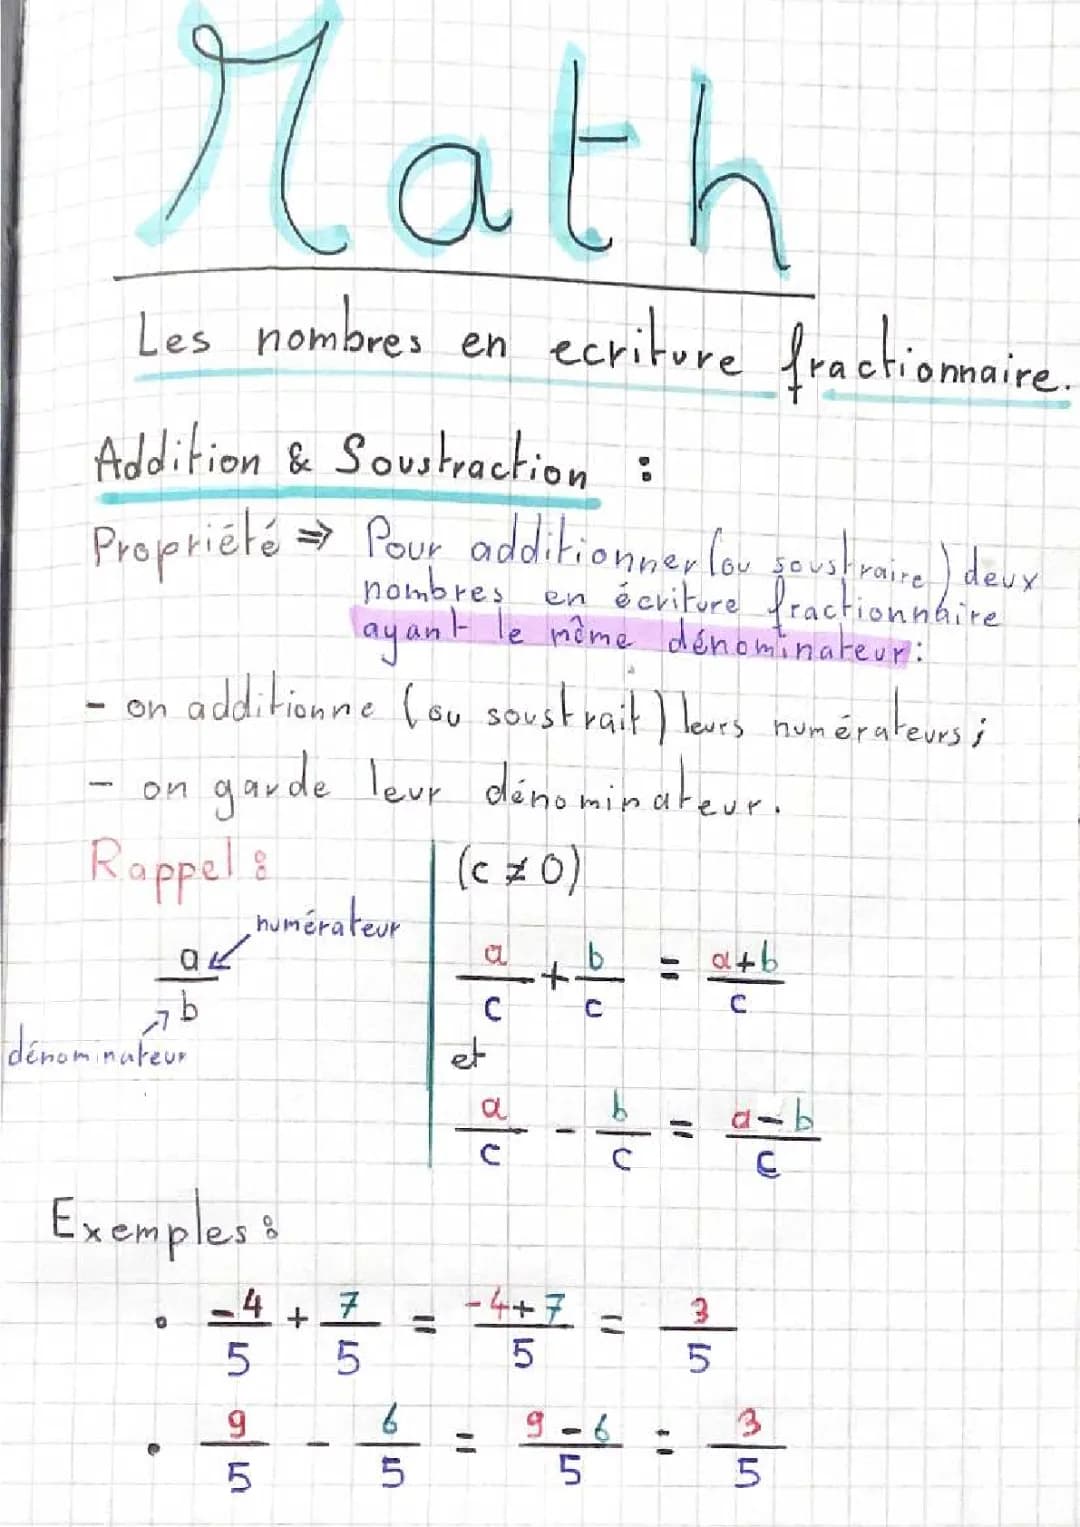 Math
Les nombres en ecriture fractionnaire.
Addition & Soustraction :
Propriété ⇒ Pour additionner (ou soustraire) deux
nombres en écriture fractionnaire
ayant le même dénominateur :
- on additionne (ou soustrait) leurs numérateurs ;
- on garde leur dénominateur.
Rappel :
numérateur
a/b
dénominateur
(c ≠ 0)
a/c + b/c = a+b/c
et
a/c - b/c = a-b/c
Exemples :
• -4/5 + 7/5 = -4+7/5 = 3/5
• 9/5 - 6/5 = 9-6/5 = 3/5